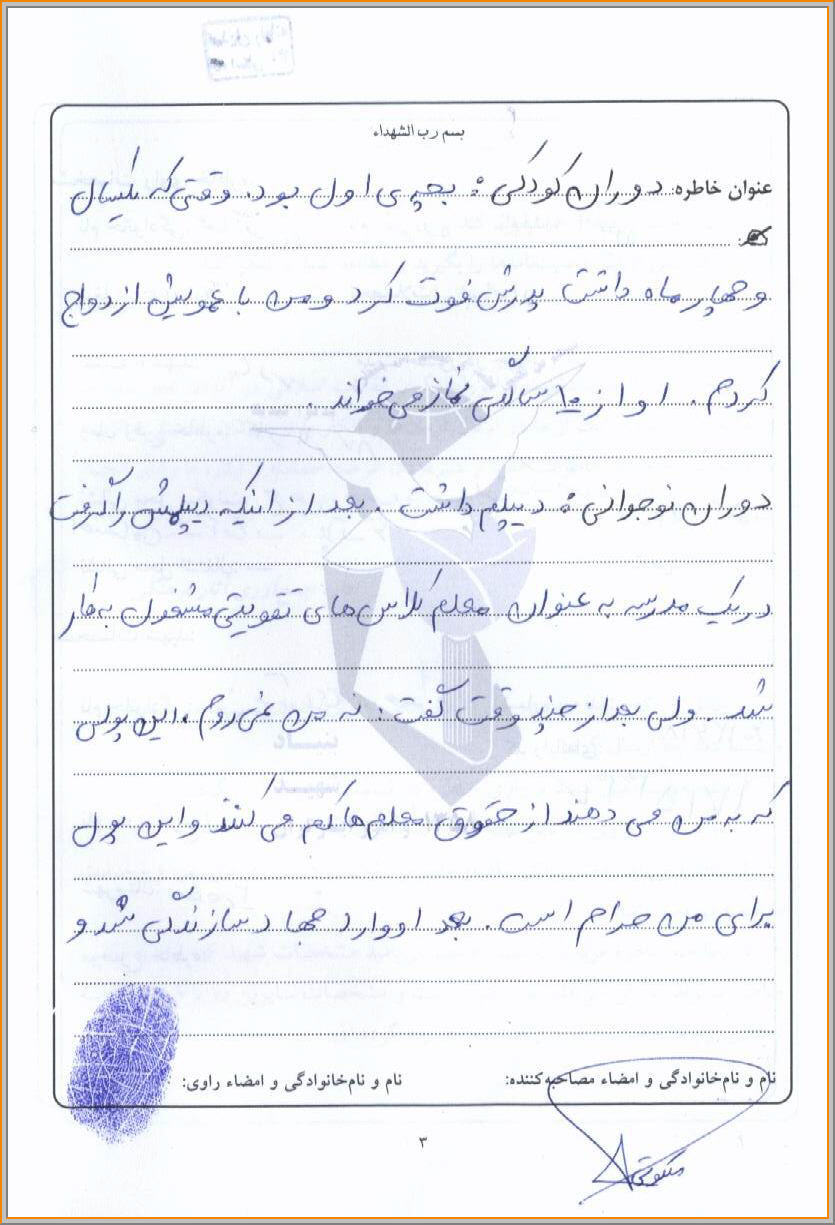 بسم رب الشهداء
عنوان خاطره: دوران کودکی: بچه‌ی اول بود. وقتی که یکسال
و چهار ماه داشت پدرش فوت کرد و من با عمویش ازدواج
کردم. او از ۱۰ سالگی نماز می‌خواند.
دوران نوجوانی: دیپلم داشت. بعد از اینکه دیپلمش را گرفت
در یک مدرسه به عنوان معلم کلاس‌های تقویتی مشغول به کار
شد. ولی بعد از چند وقت گفت: نه من نمی‌روم. این پولی
که به من می دهند از حقوق معلم‌ها کم می کنند و این پول
برای من حرام است. بعد او وارد جهاد سازندگی شد و
نام و نام‌خانوادگی و امضاء مصاحبه‌کننده: نام و نام‌خانوادگی و امضاء راوی:
۳